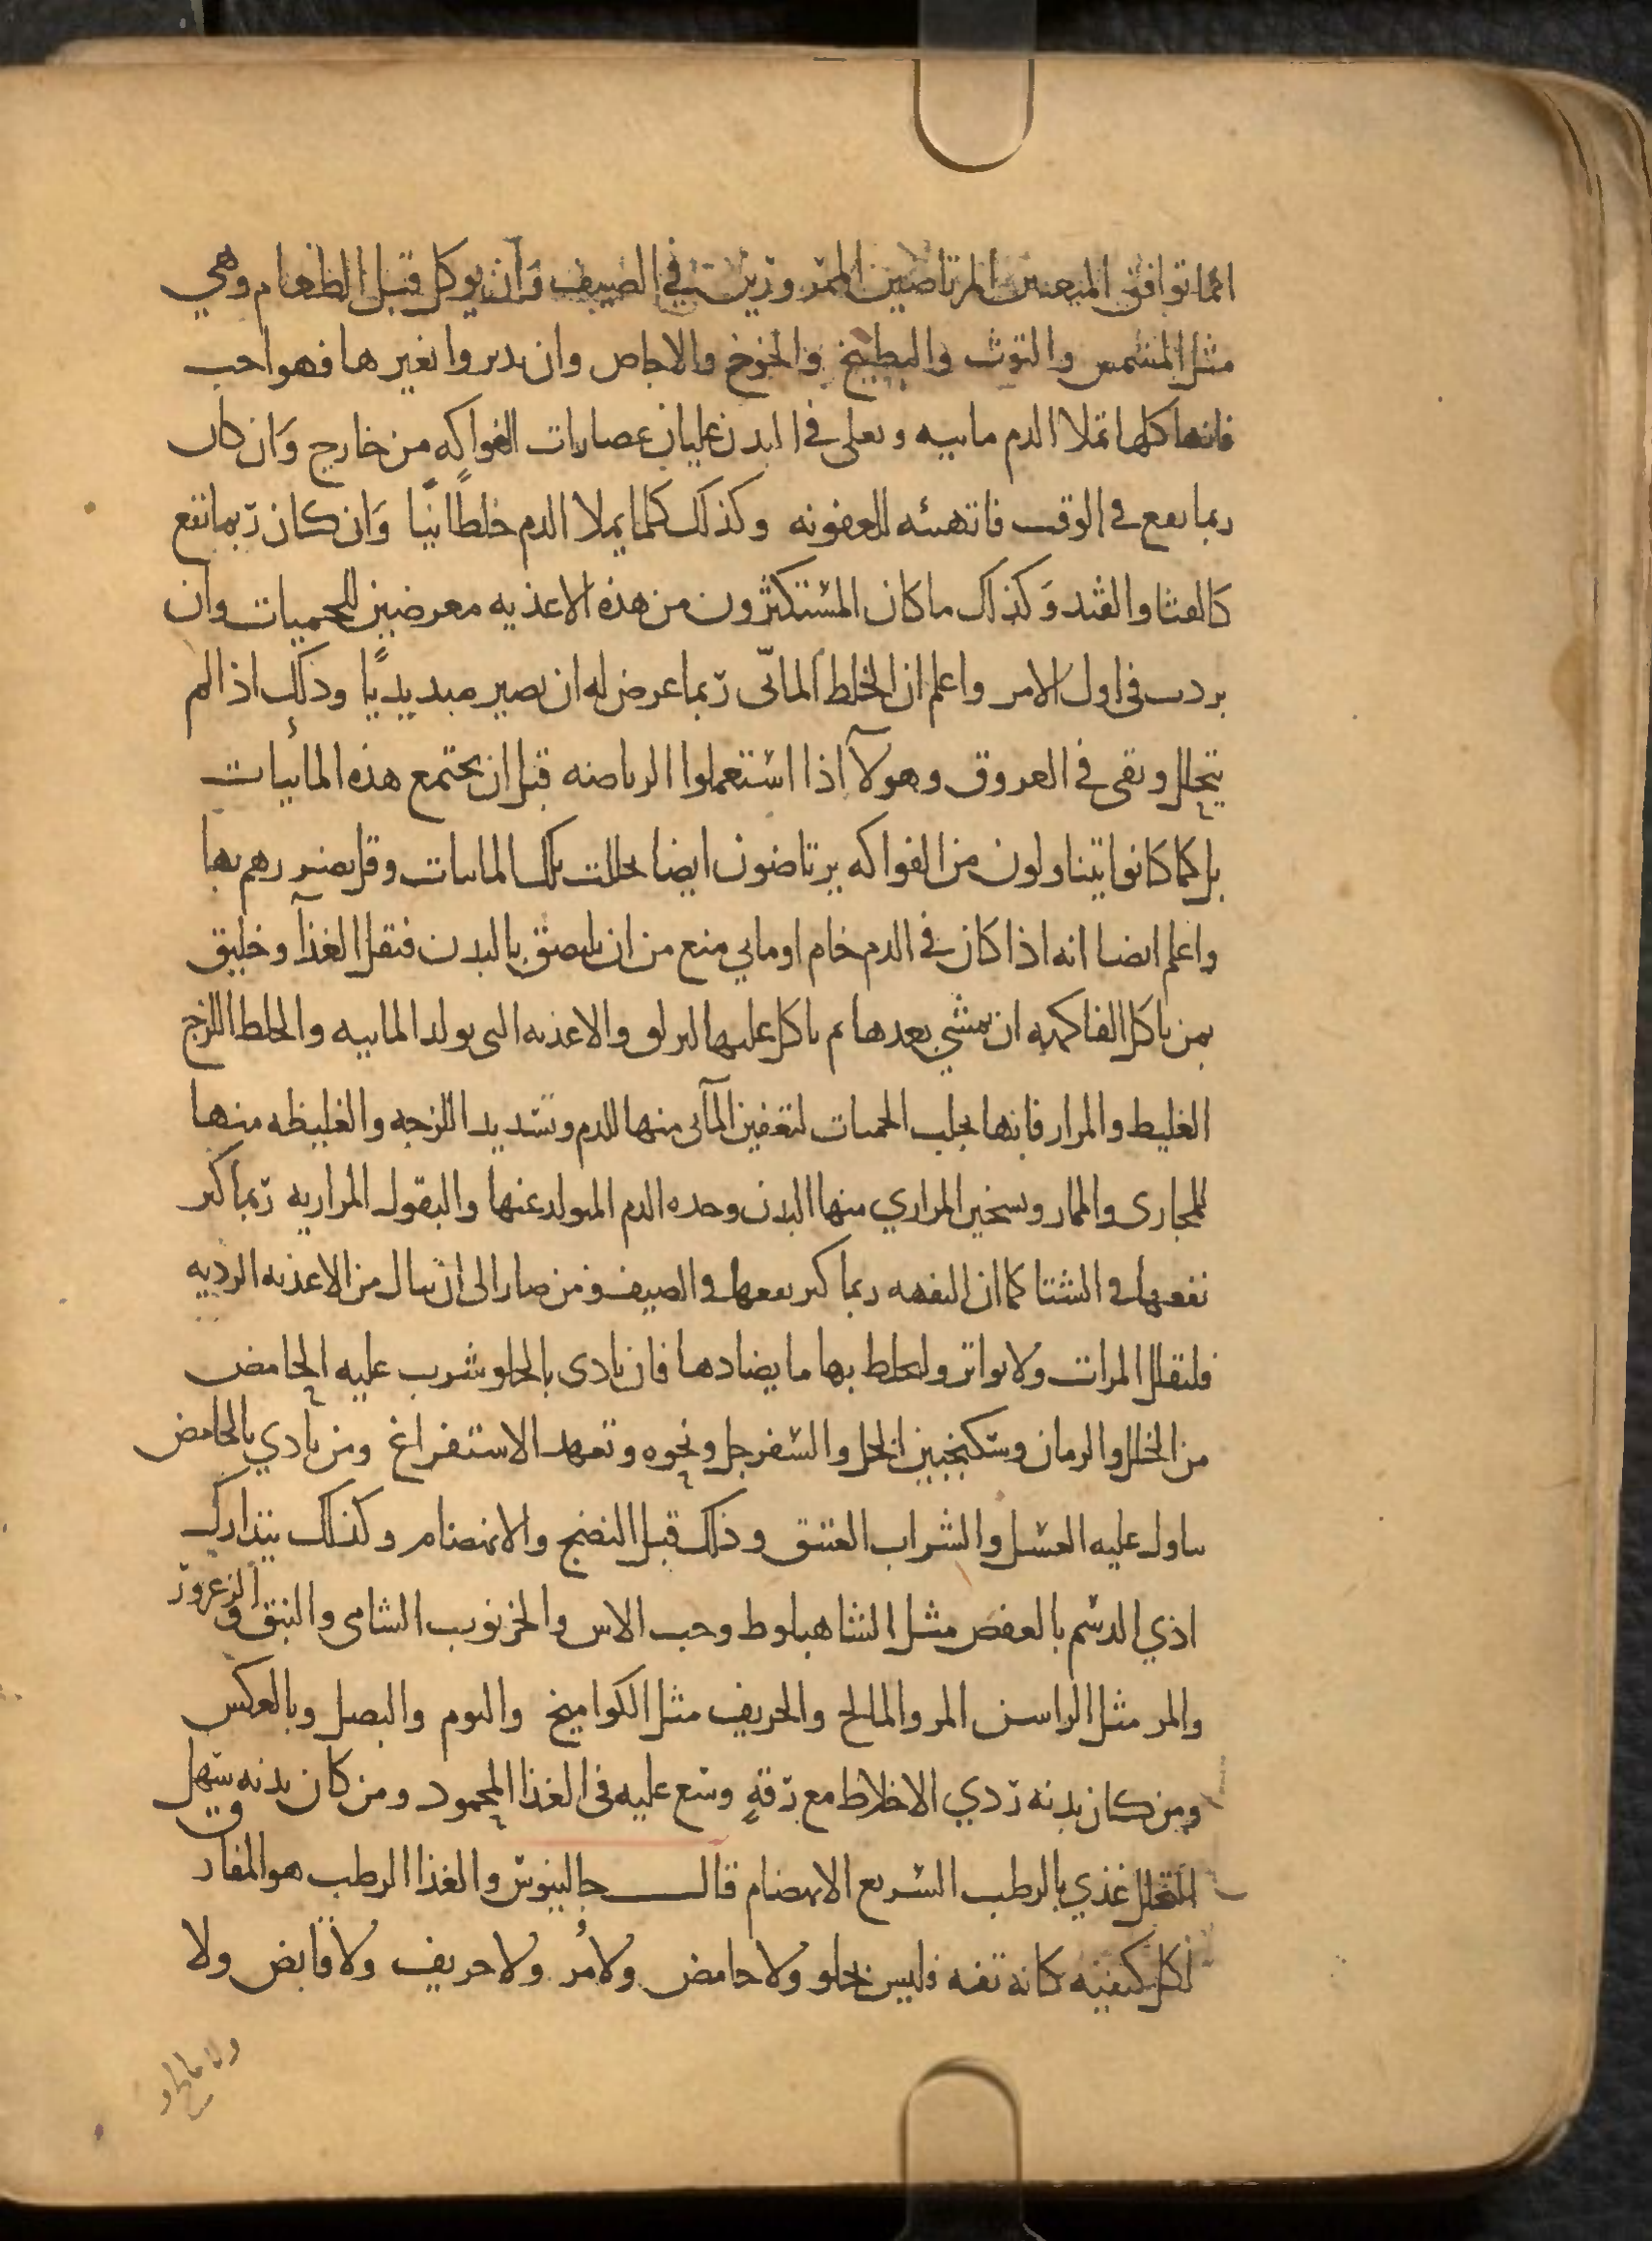 انما توافق المتعبين المرتاضين الممرورين في الصيف وان يوكل قبل الطعام وهي
مثل المشمس والتوث والبطيخ والخوخ والاجاص وان يدبروا بغيرها فهو احب
فانها كلها تملا الدم مابيه وىعلى في البدن غليان عصارات الفواكه من خارج وَان كان
ربما ىفع في الوقت فانه تهىئه للعفونه وكذلك كلما يملا الدم خلطًا نيًا وَان كان رٓبما نفع
كالقثا والقثد وَكذلك ما كان المستكثرون من هذه الاغذيه معرضيين للحميات وان
بردت في اول الامر واعلم ان الخلط المائى ربما عرض له ان يصير صديديًا وذلك اذا لم
يتحلل وبقى في العروق وهولآ اذا استعملوا الرياضه قبل ان يحتمع هذه المائيات
بل كما كانوا يتناولون من الفواكه يرتاضون ايضا تحللت تلك الماىىات وقل تضررهم بها
واعلم ايضا انه اذا كان في الدم خام او مايي منع من ان يلتصق بالبدن فيقل الغذآ وخليق
بمن ياكل الفاكهه ان يمشي بعدها ثم ياكل عليها ليزلق والاغذيه التي تولد المابيه والخلط اللزج
الغليط والمرار فانها تجلب الحميات لتعفين المآئى منها للدم وتشديد اللزجه والغليظه منها
للمجارى والممار وتسخين المراري منها البدن وحده الدم المتولد عنها والبقول المراريه ربما كثر
نفعها في الشتا كما ان التفهه ربما كثر نفعها في الصيف ومن صار الى ان ينال من الاغذيه الرديه
فليقلل المرات ولا يواتر وليخلط بها ما يضادها فان تاذى بالحلو شرب عليه الحامض
من الخل والرمان وسكنجبين الخل والسفرجل ونحوه وتعهد الاستفراغ ومن تاذي بالحامض
تناول عليه العسل والشراب العتيق وذلك قبل النضج والانهضام وكذلك يتدارك
اذي الدسم بالعفص مثل الشاهبلوط وحب الاس والخرنوب الشامى والنبق والزعرور
والمر مثل الراسن المر والمالح والحريف مثل الكواميخ والثوم والبصل وبالعكس
ومن كان بدنه ردي الاخلاط مع رقةٍ وسع عليه في الغذا المحمود ومن كان بدنه سهل
التحلل غذي بالرطب السريع الانهضام قال جالينوس والغذا الرطب هو المفارق
لكل كيفيه كانه تفه فليس بحلو ولا حامض ولا مُر ولا حريف ولا قابض ولا
ولا مالح